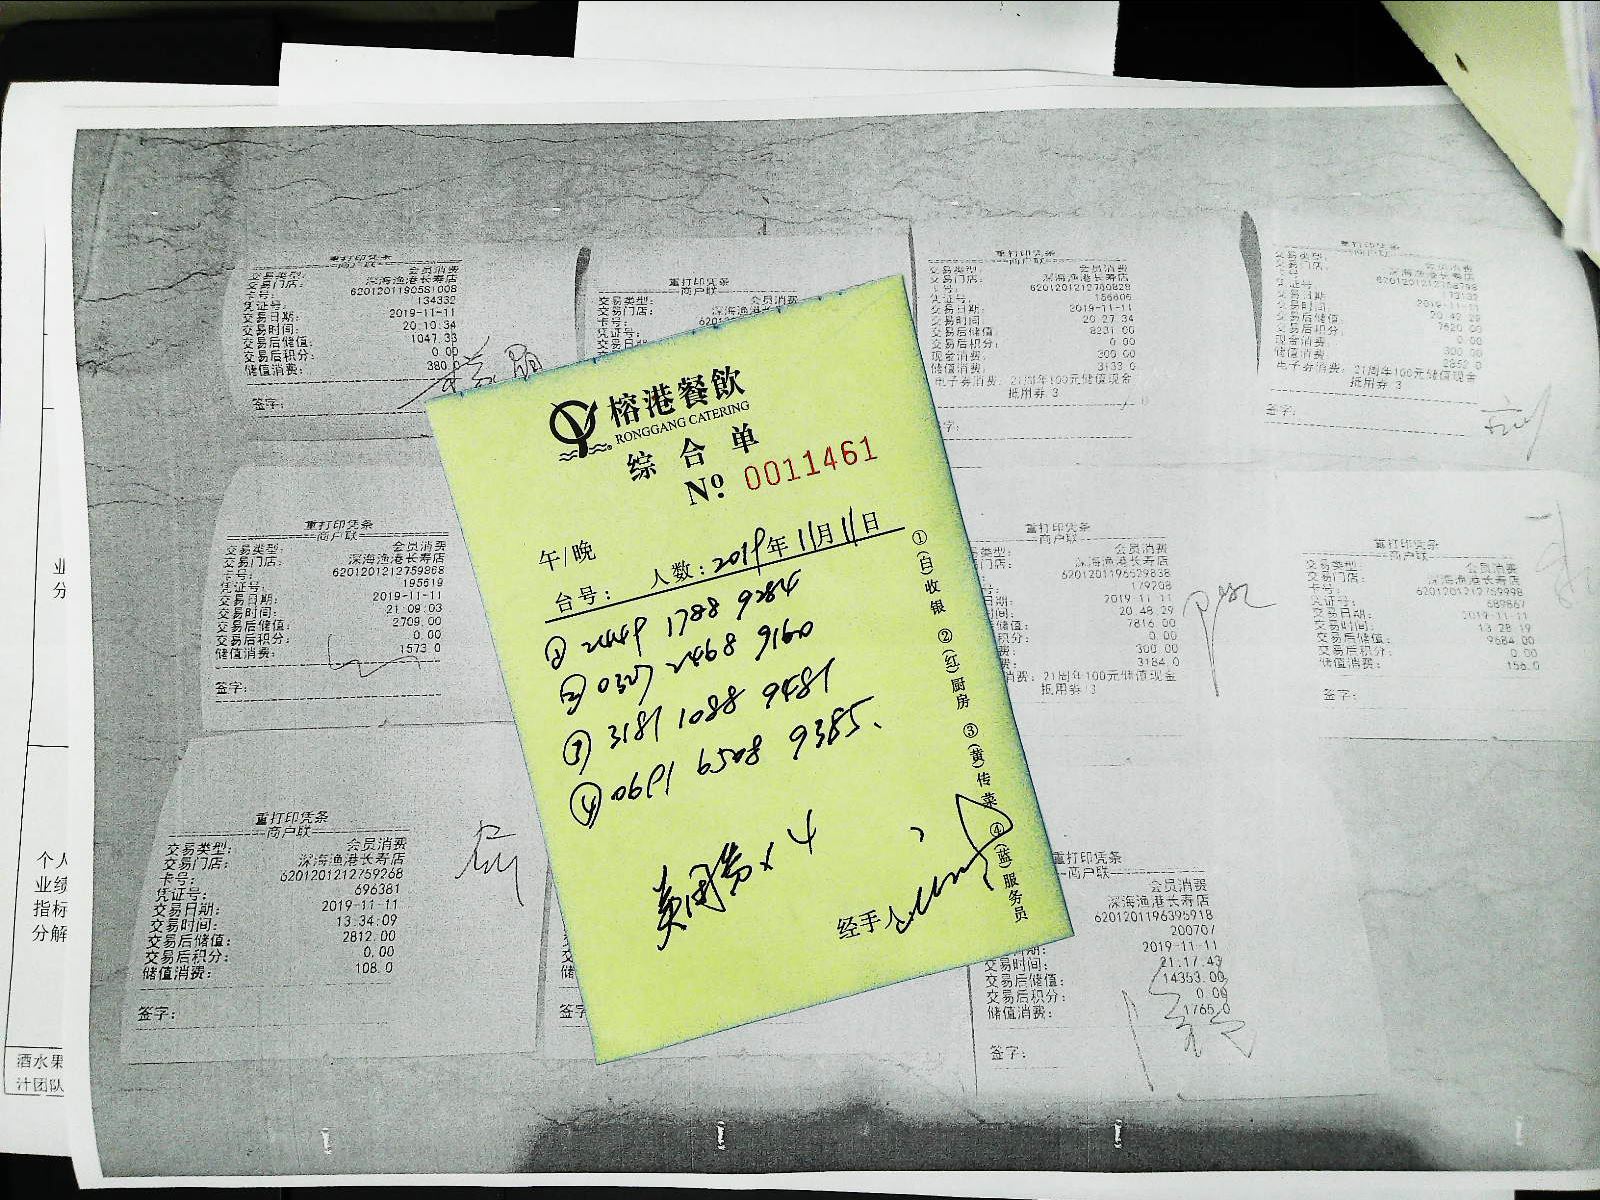 重打印凭条
商户联
交易类型: 会员消费
交易门店: 深海渔港长寿店
卡号: 6201201190581008
凭证号: 134332
交易日期: 2019-11-11
交易时间: 20:10:34
交易后储值: 1047.33
交易后积分: 0.00
储值消费: 380
签字:
重打印凭条
商户联
交易类型: 会员消费
交易门店: 深海渔港长寿店
卡号:
凭证号:
重打印凭条
商户联
交易类型 会员消费
交易门店: 深海渔港长寿店
卡号: 6201201212760828
凭证号: 156606
交易日期: 2019-11-11
交易时间: 20 27 34
交易后储值: 8231 00
交易后积分: 0 00
现金消费: 300 00
储值消费: 3133 0
电子券消费: 21周年100元储值现金
抵用券 3
字:
重打印凭条
商户联
交易类型: 会员消费
交易门店: 深海渔港长寿店
凭证号
交易日期 2019-11-11
交易时间: 20 42 29
交易后储值 7620 00
交易后积分: 0 00
现金消费 300 00
储值消费: 2852 0
电子券消费: 21周年100元储值现金
抵用券 3
签字:
重打印凭条
商户联
交易类型: 会员消费
交易门店: 深海渔港长寿店
卡号: 6201201212759868
凭证号: 195619
交易日期: 2019-11-11
交易时间: 21:09:03
交易后储值: 2709.00
交易后积分: 0.00
储值消费: 1573 0
签字:
榕港餐飲
RONGGANG CATERING
综合单
Nº 0011461
午/晚
台号: 人数: 2019年11月11日
① 2449 1788 9284
② 0327 2468 9160
③ 3181 1088 9481
④ 0691 6508 9385、
美团劵x4
经手人
①(白)收银 ②(红)厨房 ③(黄)传菜 ④(蓝)服务员
重打印凭条
商户联
交易类型: 会员消费
门店: 深海渔港长寿店
6201201196529838
179208
日期: 2019 11 11
时间: 20 48 29
储值: 7816 00
积分: 0 00
费: 300 00
费: 3184 0
消费: 21周年100元储值现金
抵用券 3
重打印凭条
商户联
交易类型: 会员消费
交易门店: 深海渔港长寿店
卡号: 6201201212759998
凭证号: 689867
交易日期: 2019-11-11
交易时间: 13 28 19
交易后储值: 9684 00
交易后积分: 0.00
储值消费: 156.0
签字:
重打印凭条
商户联
交易类型: 会员消费
交易门店: 深海渔港长寿店
卡号: 6201201212759268
凭证号: 696381
交易日期: 2019-11-11
交易时间: 13:34:09
交易后储值: 2812.00
交易后积分: 0.00
储值消费: 108.0
签字:
签字
重打印凭条
商户联
会员消费
深海渔港长寿店
6201201196395918
200707
2019-11-11
交易时间: 21:17:43
交易后储值: 14353.00
交易后积分: 0.00
储值消费: 1765.0
签字:
业
分
个人
业绩
指标
分解
酒水果
汁团队